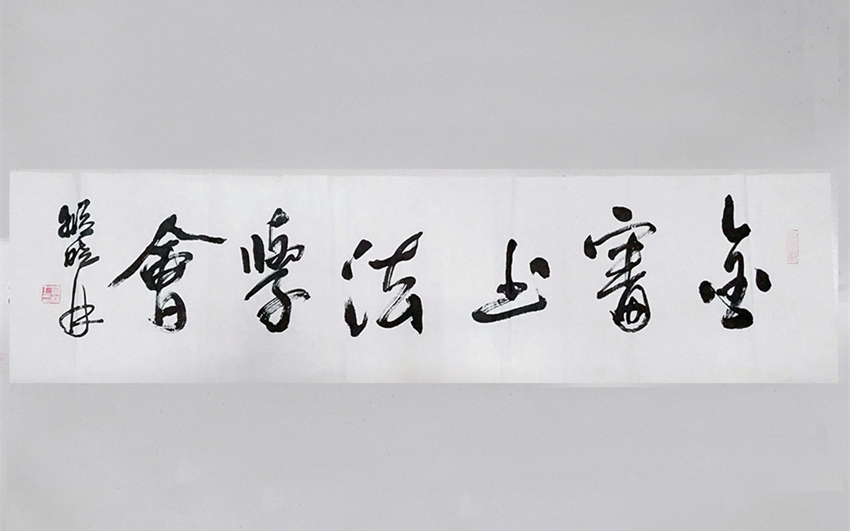 金審书法學會